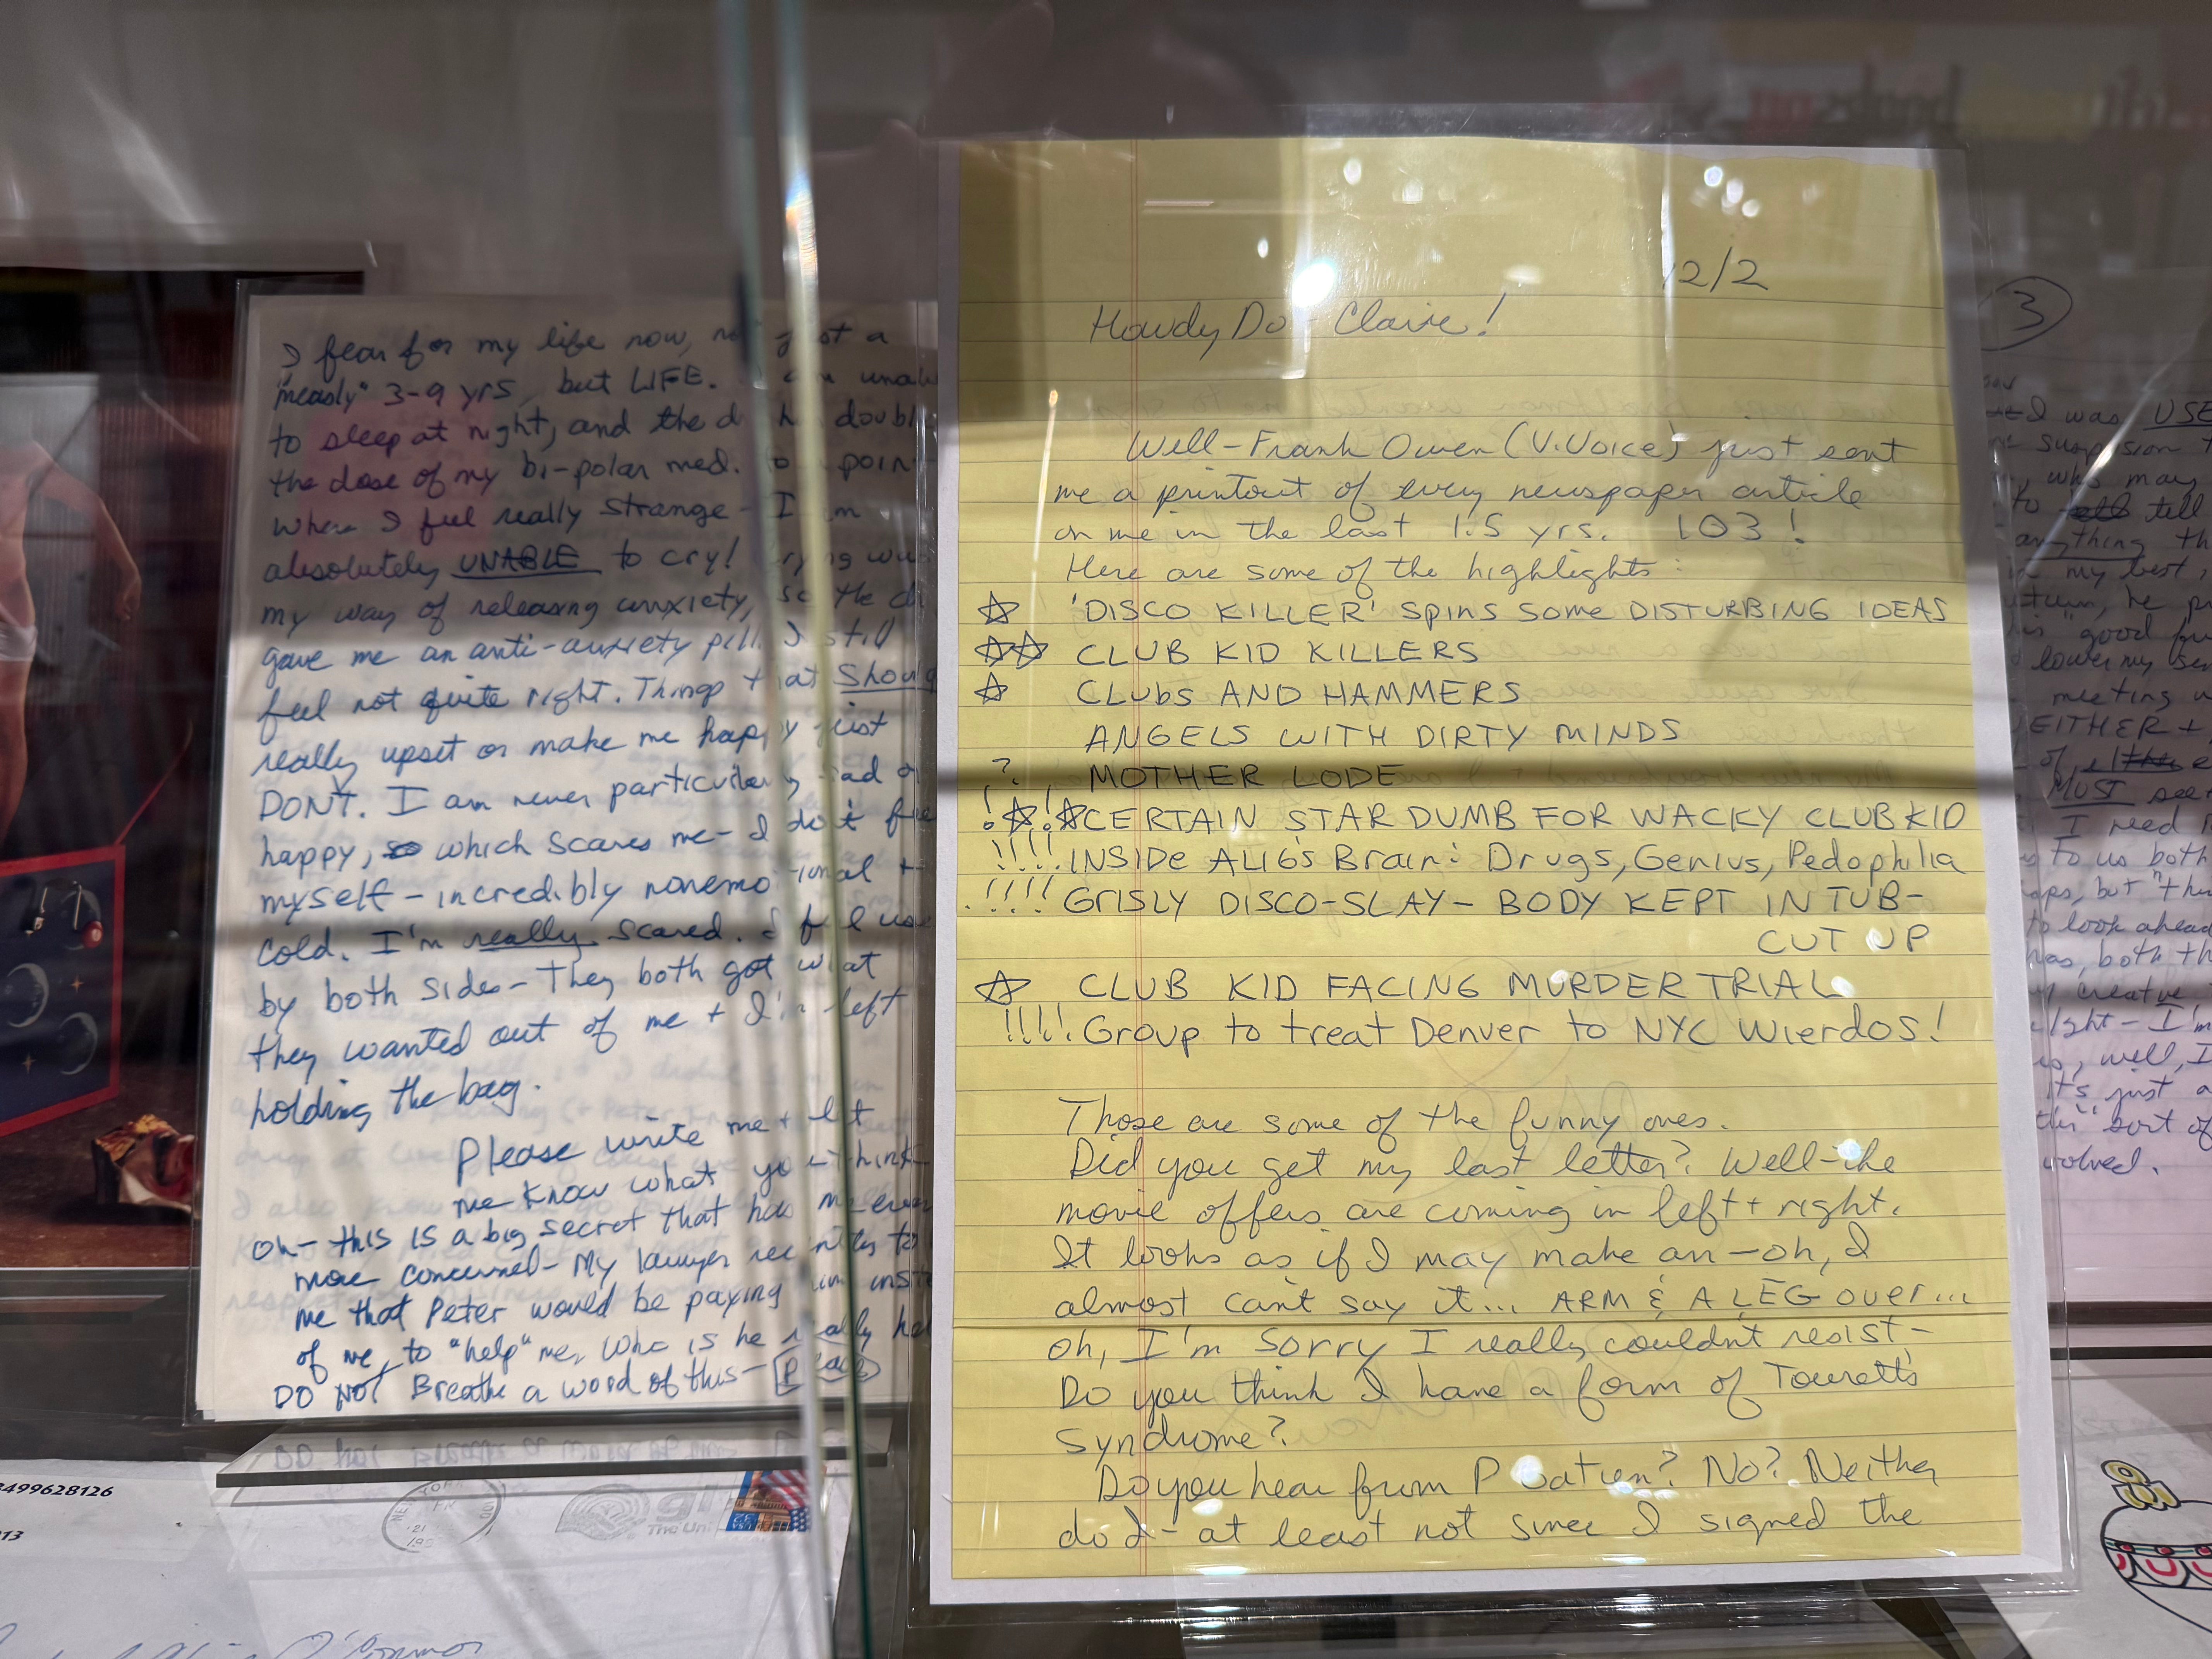 I fear for my life now, not just a
"measly" 3-9 yrs, but LIFE. am unab
to sleep at night, and the d has doubl
the dose of my bi-polar med. to poin
where I feel really strange - I am
absolutely UNABLE to cry! crying was
my way of releasing anxiety, so the d
gave me an anti-anxiety pill. I still
feel not quite right. Things that should
really upset or make me happy just
DON'T. I am never particularly sad or
happy, so which scares me- I don't fee
myself - incredibly nonemotional +
cold. I'm really scared. I feel use
by both sides - they both got what
they wanted out of me + I'm left
holding the bag.
Please write me + let
me know what you think
Oh- this is a big secret that has me even
more concerned- My lawyer recently to
me that Peter would be paying him inste
of me, to "help" me, Who is he really he
DO NOT Breathe a word of this-
3499628126
13
NEW YORK
The Uni
O'Connor
12/2
Howdy Do - Claire!
Well-Frank Owen (V.Voice) just sent
me a printout of every newspaper article
on me in the last 1.5 yrs. 103!
Here are some of the highlights:
☆ 'DISCO KILLER' SPINS SOME DISTURBING IDEAS
☆☆ CLUB KID KILLERS
☆ CLUBS AND HAMMERS
ANGELS WITH DIRTY MINDS
? MOTHER LODE
!☆!☆CERTAIN STAR DUMB FOR WACKY CLUB KID
!!!! INSIDE ALIG'S Brain: Drugs, Genius, Pedophilia
!!!! GRISLY DISCO-SLAY- BODY KEPT IN TUB-
CUT UP
☆ CLUB KID FACING MURDER TRIAL
!!!! Group to treat Denver to NYC Wierdos!
Those are some of the funny ones.
Did you get my last letter? Well-the
movie offers are coming in left + right.
It looks as if I may make an-oh, I
almost can't say it... ARM & A LEG over...
oh, I'm sorry I really couldn't resist-
Do you think I have a form of Tourett's
Syndrome?
Do you hear from P Gatien? No? Neither
do I- at least not since I signed the
3
I was USE
suspision
, who may
to tell
anything th
my best,
turn, he p
"good fu
lower my sen
meeting w
EITHER +
of
MUST see
I need
to us both
aps, but "th
to look ahead
has, both th
creative
light- I'm
, well, I
It's just a
sort of
volved.